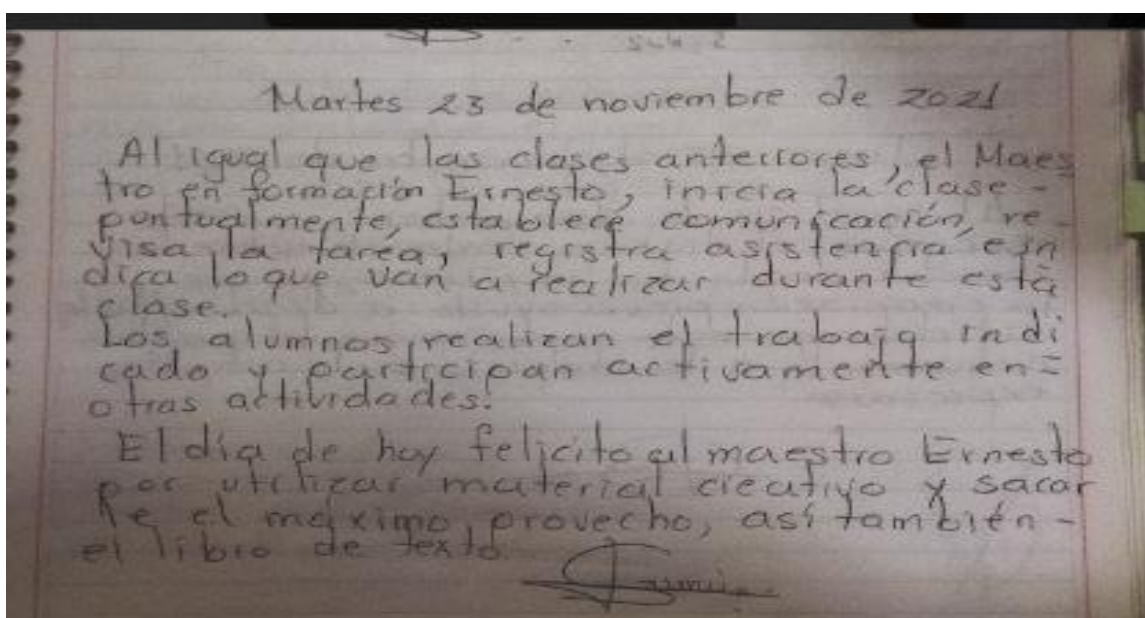 Martes 23 de noviembre de 2021
Al igual que las clases anteriores, el Maes
tro en formación Ernesto, inicia la clase -
puntualmente, establece comunicación, re -
visa la tarea, registra asistencia e in
dica lo que van a realizar durante esta
clase.
Los alumnos realizan el trabajo indi
cado y participan activamente en -
otras actividades.
El día de hoy felicito al maestro Ernesto
por utilizar material creativo y sacar
le el máximo provecho, así también -
el libro de texto